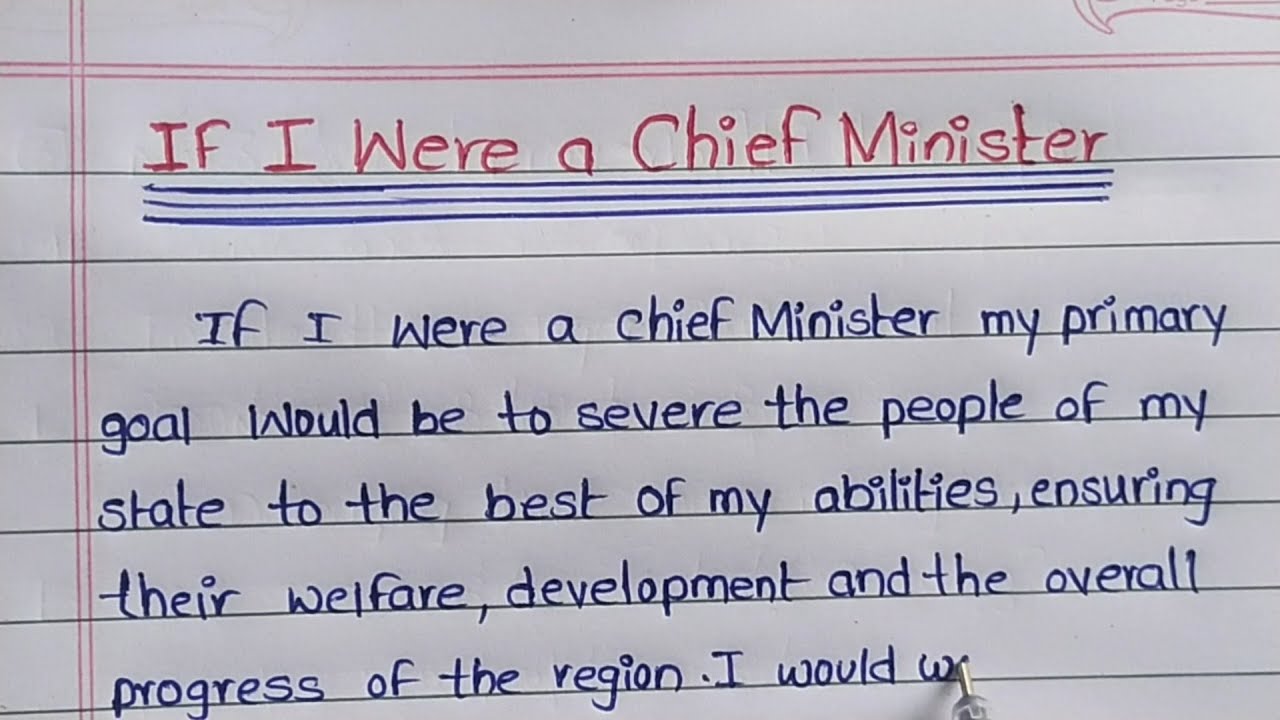 If I Were a Chief Minister
If I were a chief Minister my primary
goal would be to severe the people of my
state to the best of my abilities, ensuring
their welfare, development and the overall
progress of the region. I would